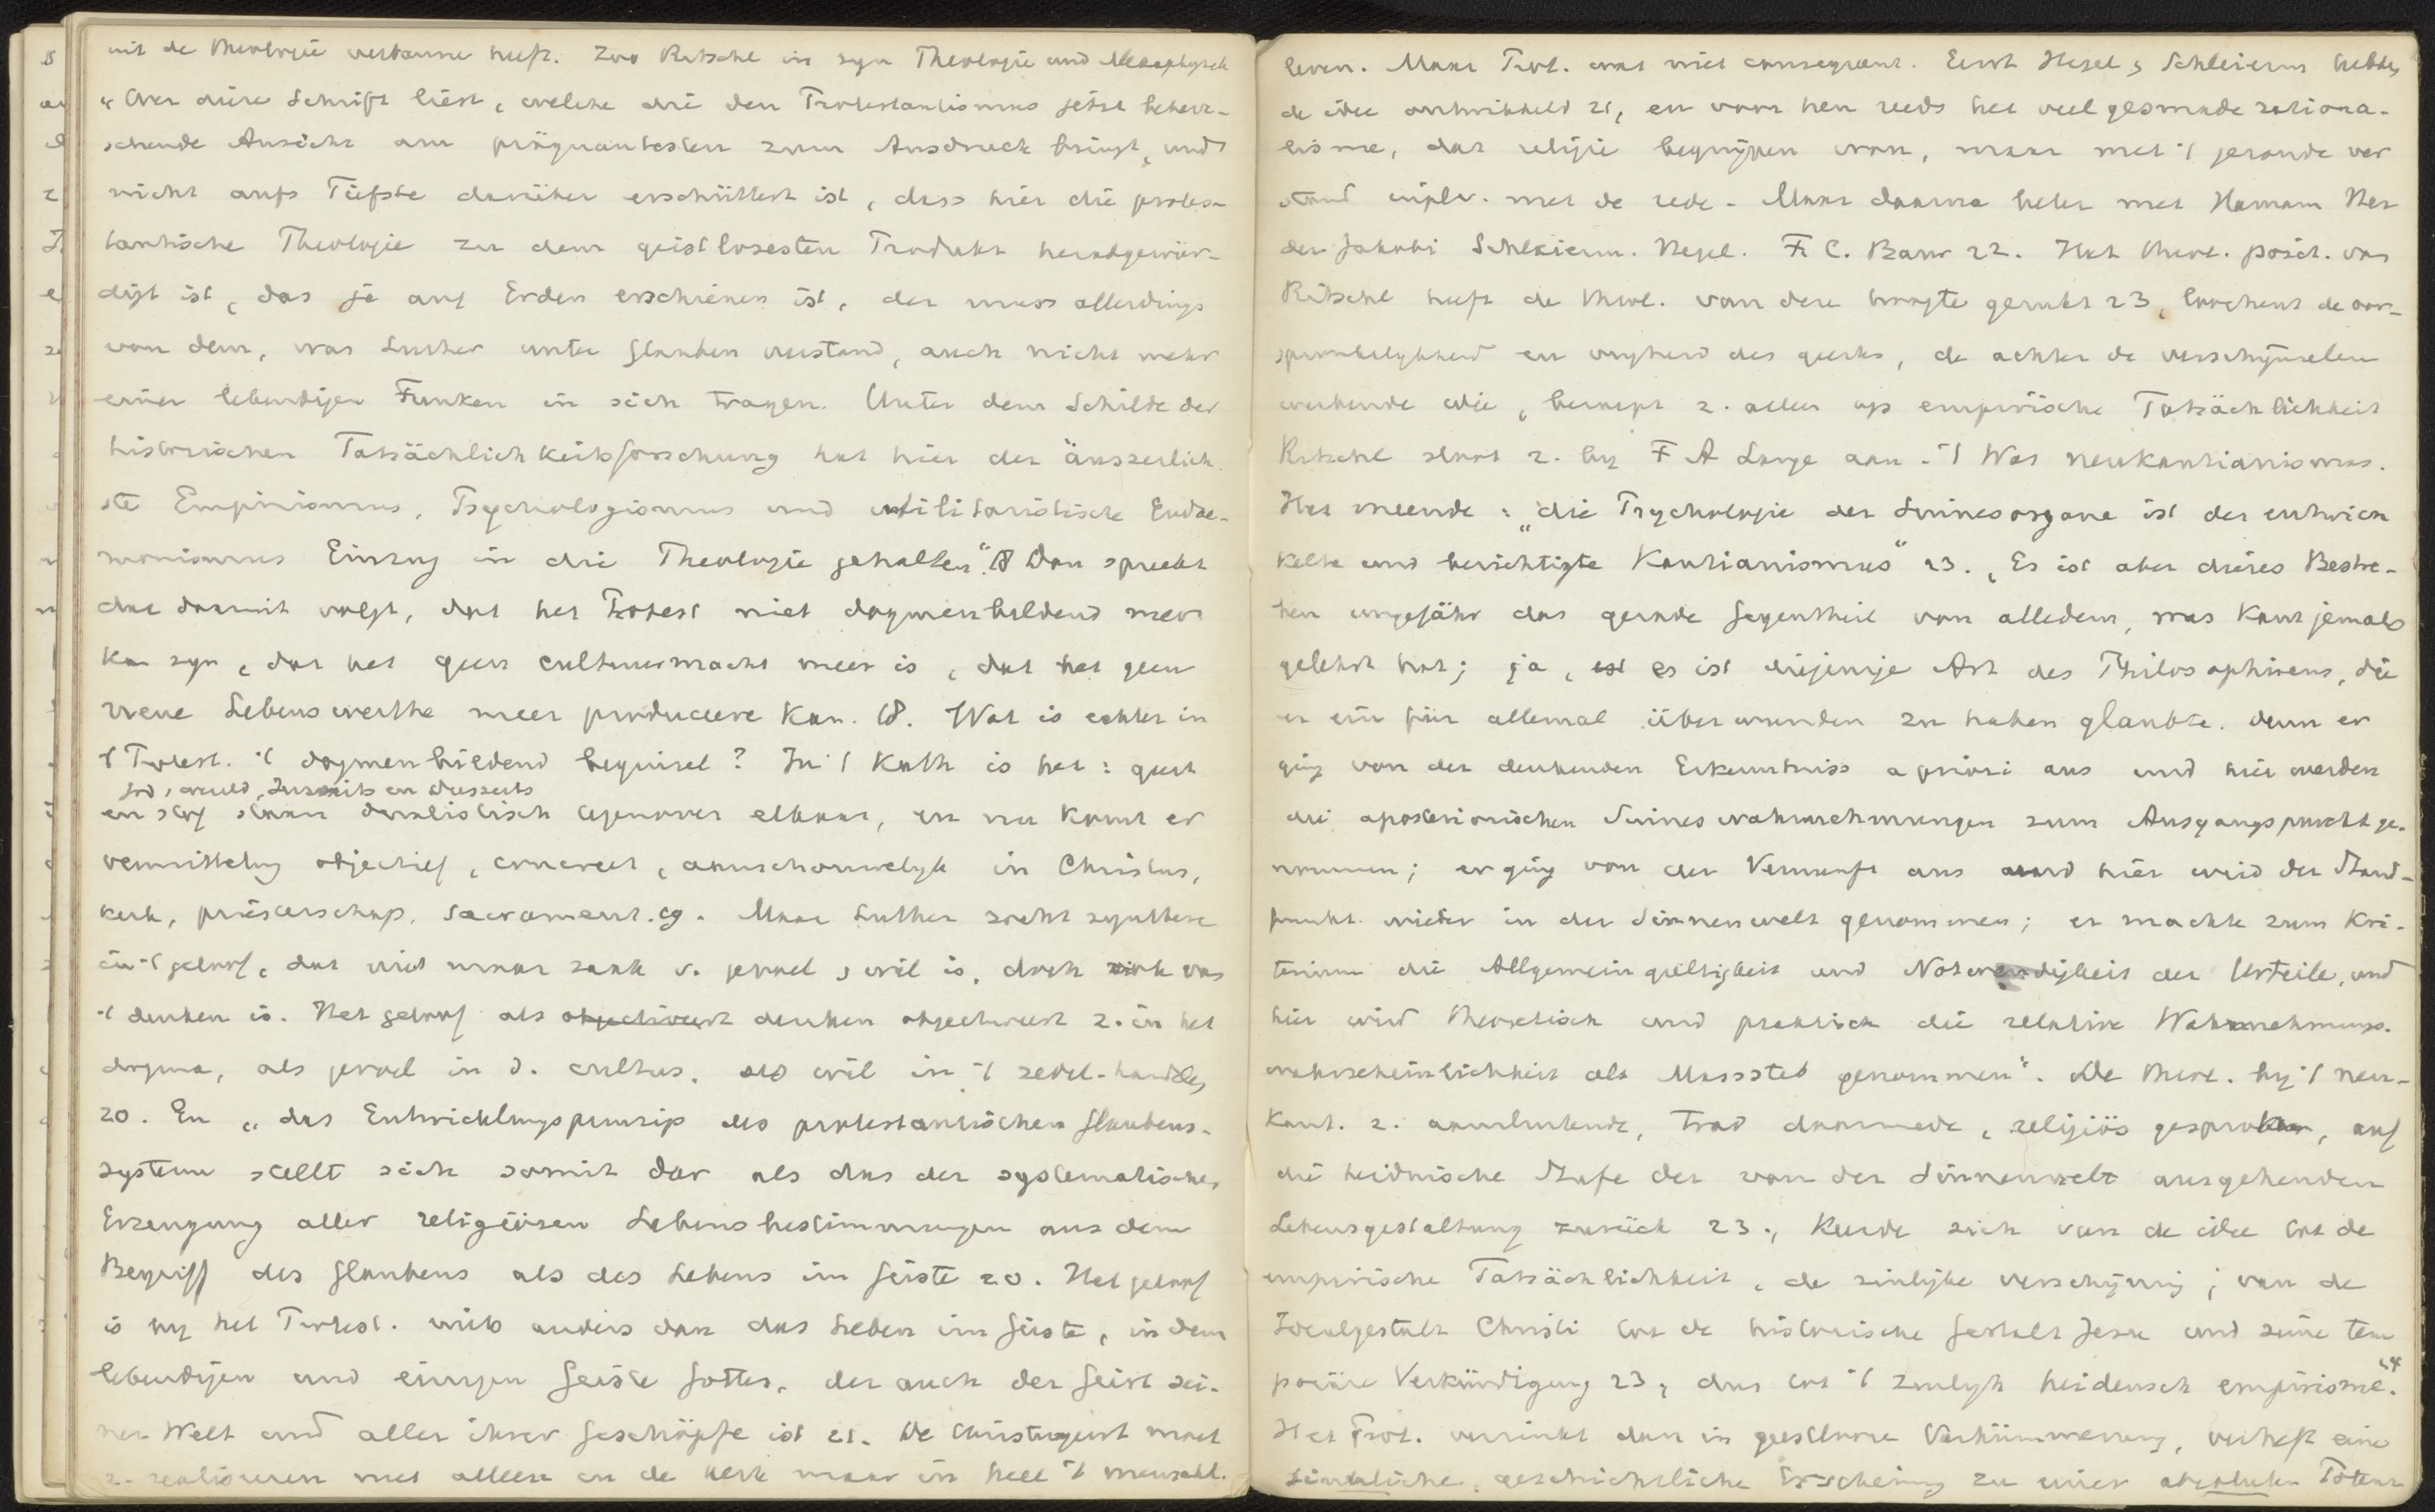 uit de theologie verbanne heeft. Zoo Ritschl in zyn Theologie und Metaphysik
"Wer diese Schrift liest, welche die den Protestantismus jetzt beherr-
schende Ansicht am prägnantesten zum Ausdruck bringt, und
nicht aufs Tiefste darüber erschüttert ist, dass hier die protes-
tantische Theologie zu dem geistlosesten Produkt herabgewür-
digt ist, das je auf Erden erschienen ist, der muss allerdings
von dem, was Luther unter Glauben verstand, auch nicht mehr
einen lebendigen Funken in sich tragen. Unter dem Schilde der
historischen Tatsächlichkeitsforschung hat hier der äusserlich-
ste Empirismus, Psychologismus und utilitaristische Eudae-
monismus Einzug in die Theologie gehalten". 18 Dan spreekt
dat daaruit volgt, dat het Protest niet dogmenbildend meer
kan zyn, dat het geen cultuurmacht meer is, dat het geen
neue Lebenswerthe meer produceere kan. 18. Wat is echter in
't Protest. 't dogmenbildend beginsel? In 't Kath is het: geest
God, wereld, Jenseits en Diesseits
en stof staan dualistisch tegenover elkaar, en nu komt er
vermitteling objectief, concreet, aanschouwelyk in Christus,
kerk, priesterschap, sacrament. 19. Maar Luther zocht synthese
in 't geloof, dat niet maar zaak v. gevoel, wil is, doch ook van
't denken is. Het geloof als denken objectiveert z. in het
dogma, als gevoel in d. cultus, als wil in 't zedel. handelen
20. En "das Entwicklungsprinzip des protestantischen Glaubens-
system stellt sich somit dar als das der systematischen
Erzeugung aller religiösen Lebensbestimmungen aus dem
Begriff des Glaubens als des Lebens im Geiste 20. Het geloof
is by het Protest. niets anders dan das Leben im Geiste, in dem
lebendigen und einigen Geiste Gottes, der auch der Geist sei-
ner Welt und aller ihrer Geschöpfe ist 21. De Christusgeest moet
z. realiseeren niet alleen in de kerk maar in heel 't menschl.
leven. Maar Prot. was niet consequent. Eerst Hegel, Schleierm hebben
de idee ontwikkeld 21, en voor hen reeds het veel gesmade rationa-
lisme, dat religie begrijpen wou, maar met 't gezonde ver
stand inplv. met de rede. Maar daarna beter met Hamann Her
der Jakobi Schleierm. Hegel. F. C. Baur 22. Het theol. posit. van
Ritschl heeft de theol. van deze hoogte gerukt 23, loochent de oor-
spronkelykheid en vryheid des geestes, de achter de verschijnselen
werkende idee, beroept z. alleen op empirische Tatsächlichkeit
Ritschl sloot z. by F A Lange aan. 't Was neukantianismus.
Het meende: "die Psychologie der Sinnesorgane ist der entwick
kelte und berichtigte Kantianismus" 23. "Es ist aber dieses Bestre-
ben ungefähr das gerade Gegentheil von alledem, was Kant jemals
gelehrt hat; ja, es ist diejenige Art des Philosophirens, die
er ein für allemal überwunden zu haben glaubte. Denn er
ging von der denkenden Erkenntniss a priori aus und hier werden
die aposteriorischen Sinneswahrnehmungen zum Ausgangspunkt ge-
nommen; er ging von der Vernunft aus und hier wird der Stand-
punkt wieder in der Sinnenwelt genommen; er machte zum Kri-
terium die Allgemeingültigkeit und Notwendigkeit der Urteile, und
hier wird theoretisch und praktisch die relative Wahrnehmungs-
wahrscheinlichkeit als Massstab genommen". De theol. by 't neu-
kant. z. aansluitende, trad daarmede, religiös gesproken, auf
die heidnische Stufe der von der Sinnenwelt ausgehenden
Lebensgestaltung zurück 23., keerde zich van de idee tot de
empirische Tatsächlichkeit, de zinlijke verschijning; van de
Idealgestalt Christi tot de historische Gestalt Jesu und seine tem
poräre Verkündigung 23, dus tot 't zinlyk heidensch empirisme. 24
Het Prot. verzinkt dan in geestlooze Verkümmerung, verheft eine
sinnliche, geschichtliche Erscheinung zu einer absoluten Potenz